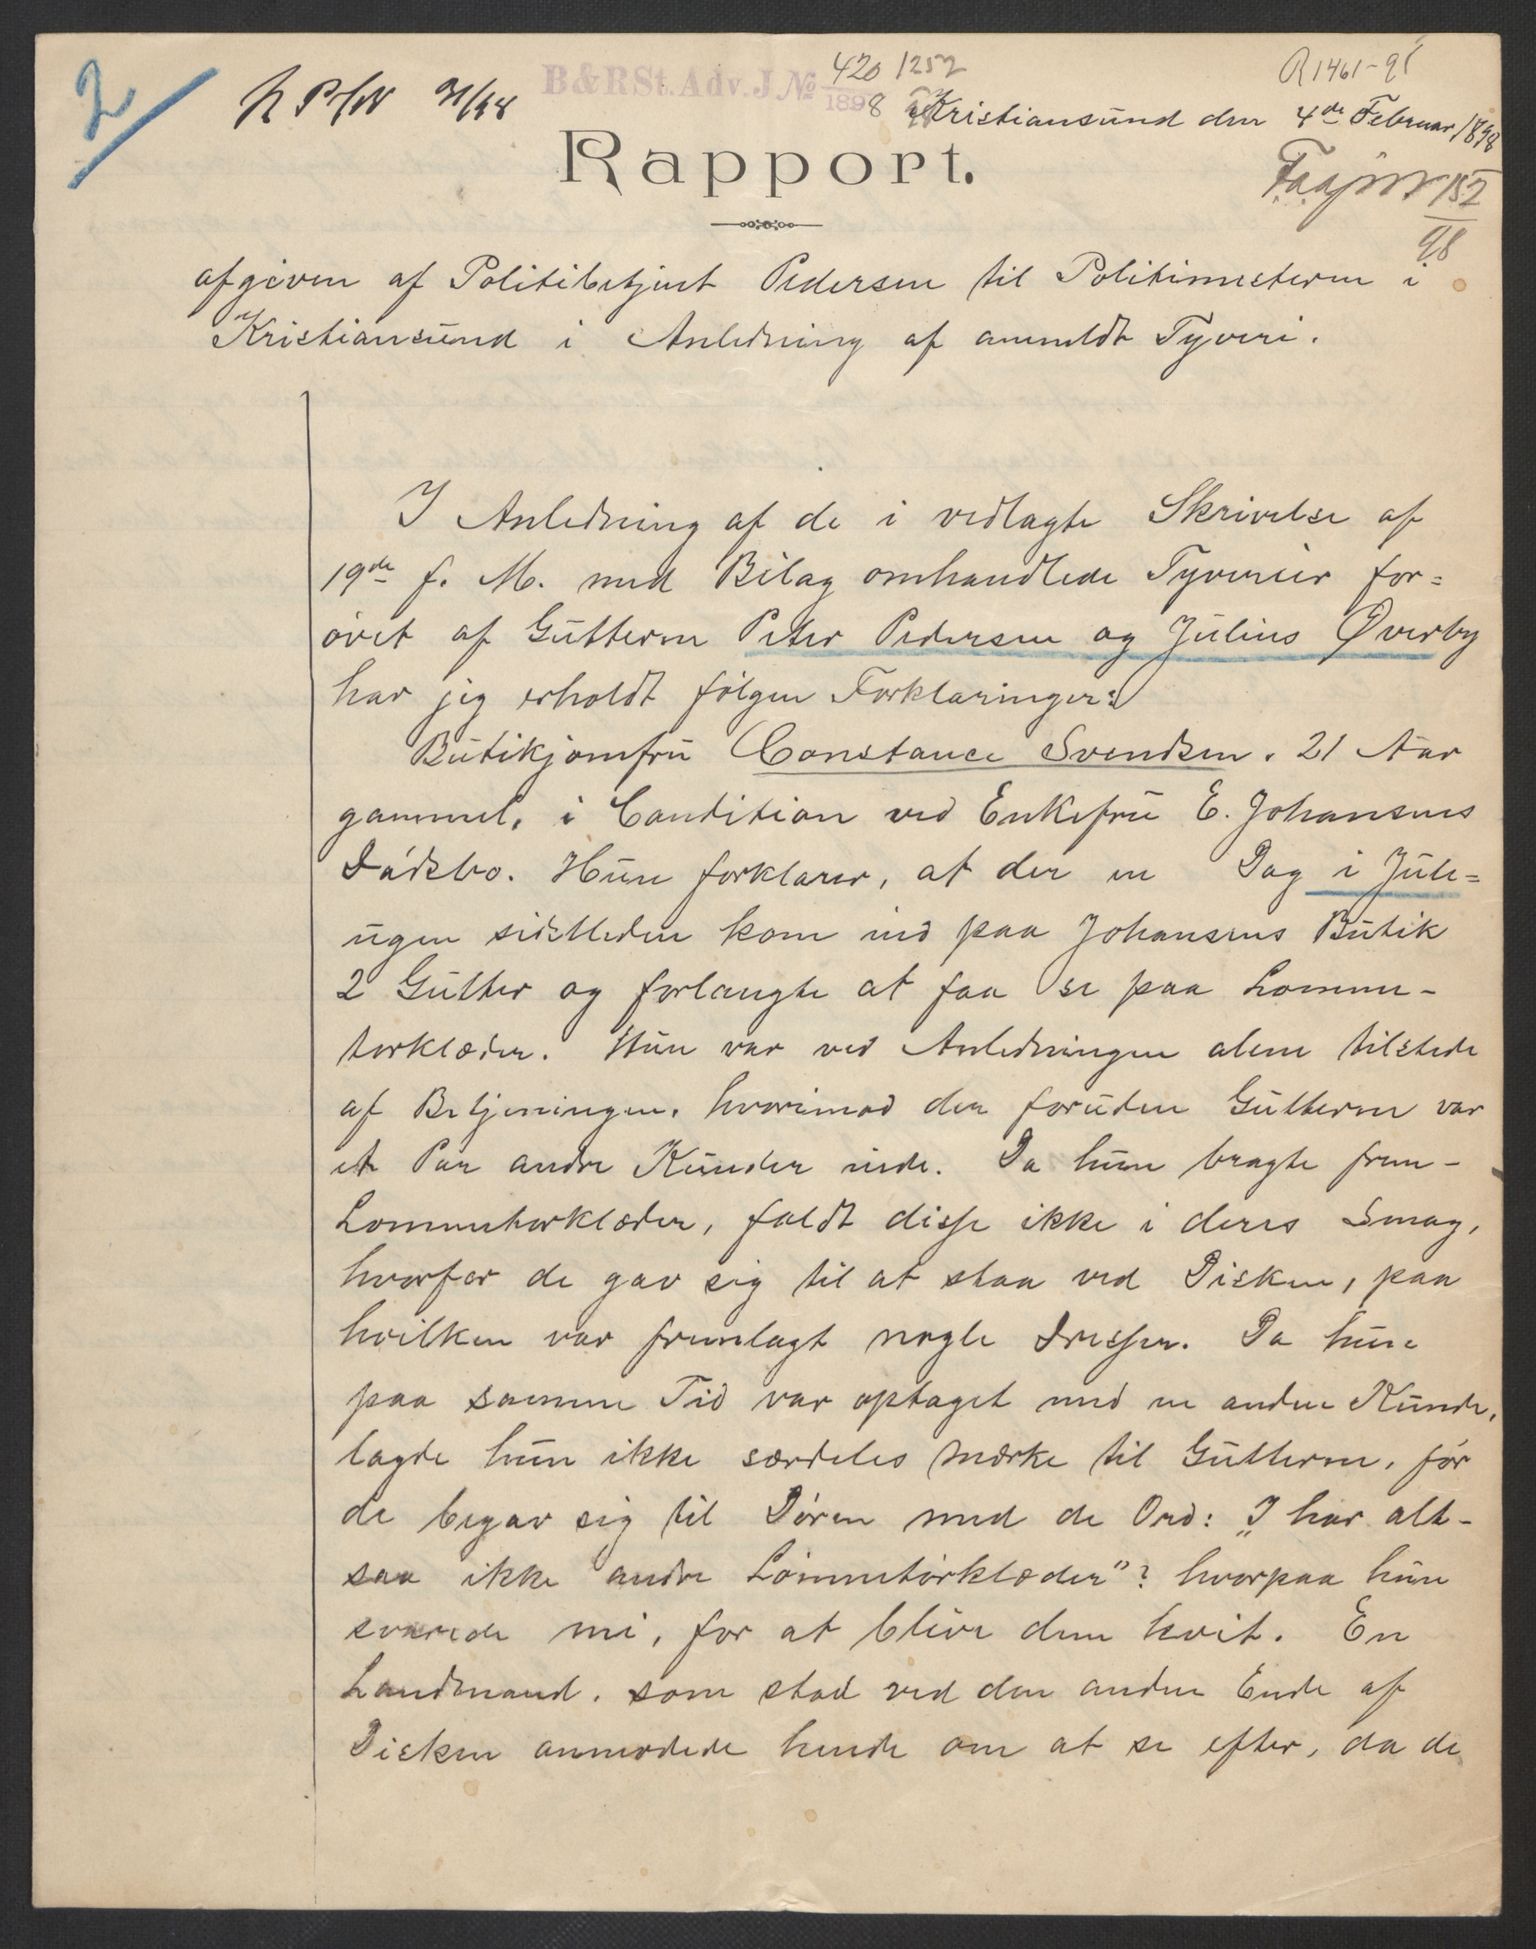 2
B & R St. Adv. J. № 420/1898
1252
R 1461-98
Kristiansund den 4de Februar 1898
Rapport.
152
98
afgiven af Politibetjent Pedersen til Politimesteren i
Kristiansund i Anledning af anmeldt Tyveri.
I Anledning af de i vedlagte Skrivelse af
19de f. M. med Bilag omhandlede Tyverier for=
øvet af Gutterne Peter Pedersen og Julius Øverby
har jeg erholdt følgen Forklaringer:
Butikjomfru Constance Svendsen. 21 Aar
gammel, i Condition ved Enkefru E. Johansens
Dødsbo. Hun forklarer, at der en Dag i Jule=
ugen sidstleden kom ind paa Johansens Butik
2 Gutter og forlangte at faa se paa Lomme-
tørklæder. Hun var ved Anledningen alene tilstede
af Betjeningen, hvorimod der foruden Gutterne var
et Par andre Kunder inde. Da hun bragte frem-
Lommetørklæder, faldt disse ikke i deres Smag,
hvorfor de gav sig til at staa ved Disken, paa
hvilken var fremlagt nogle Dresser. Da hun
paa samme Tid var optaget med en anden Kunde,
lagde hun ikke særdeles Mærke til Gutterne, før
de begav sig til Døren med de Ord: „I har alt-
saa ikke andre Lommetørklæder"? hvorpaa hun
svarede nei, for at blive dem kvit. En
Landmand, som stod ved den anden Ende af
Disken anmodede hende om at se efter, da de